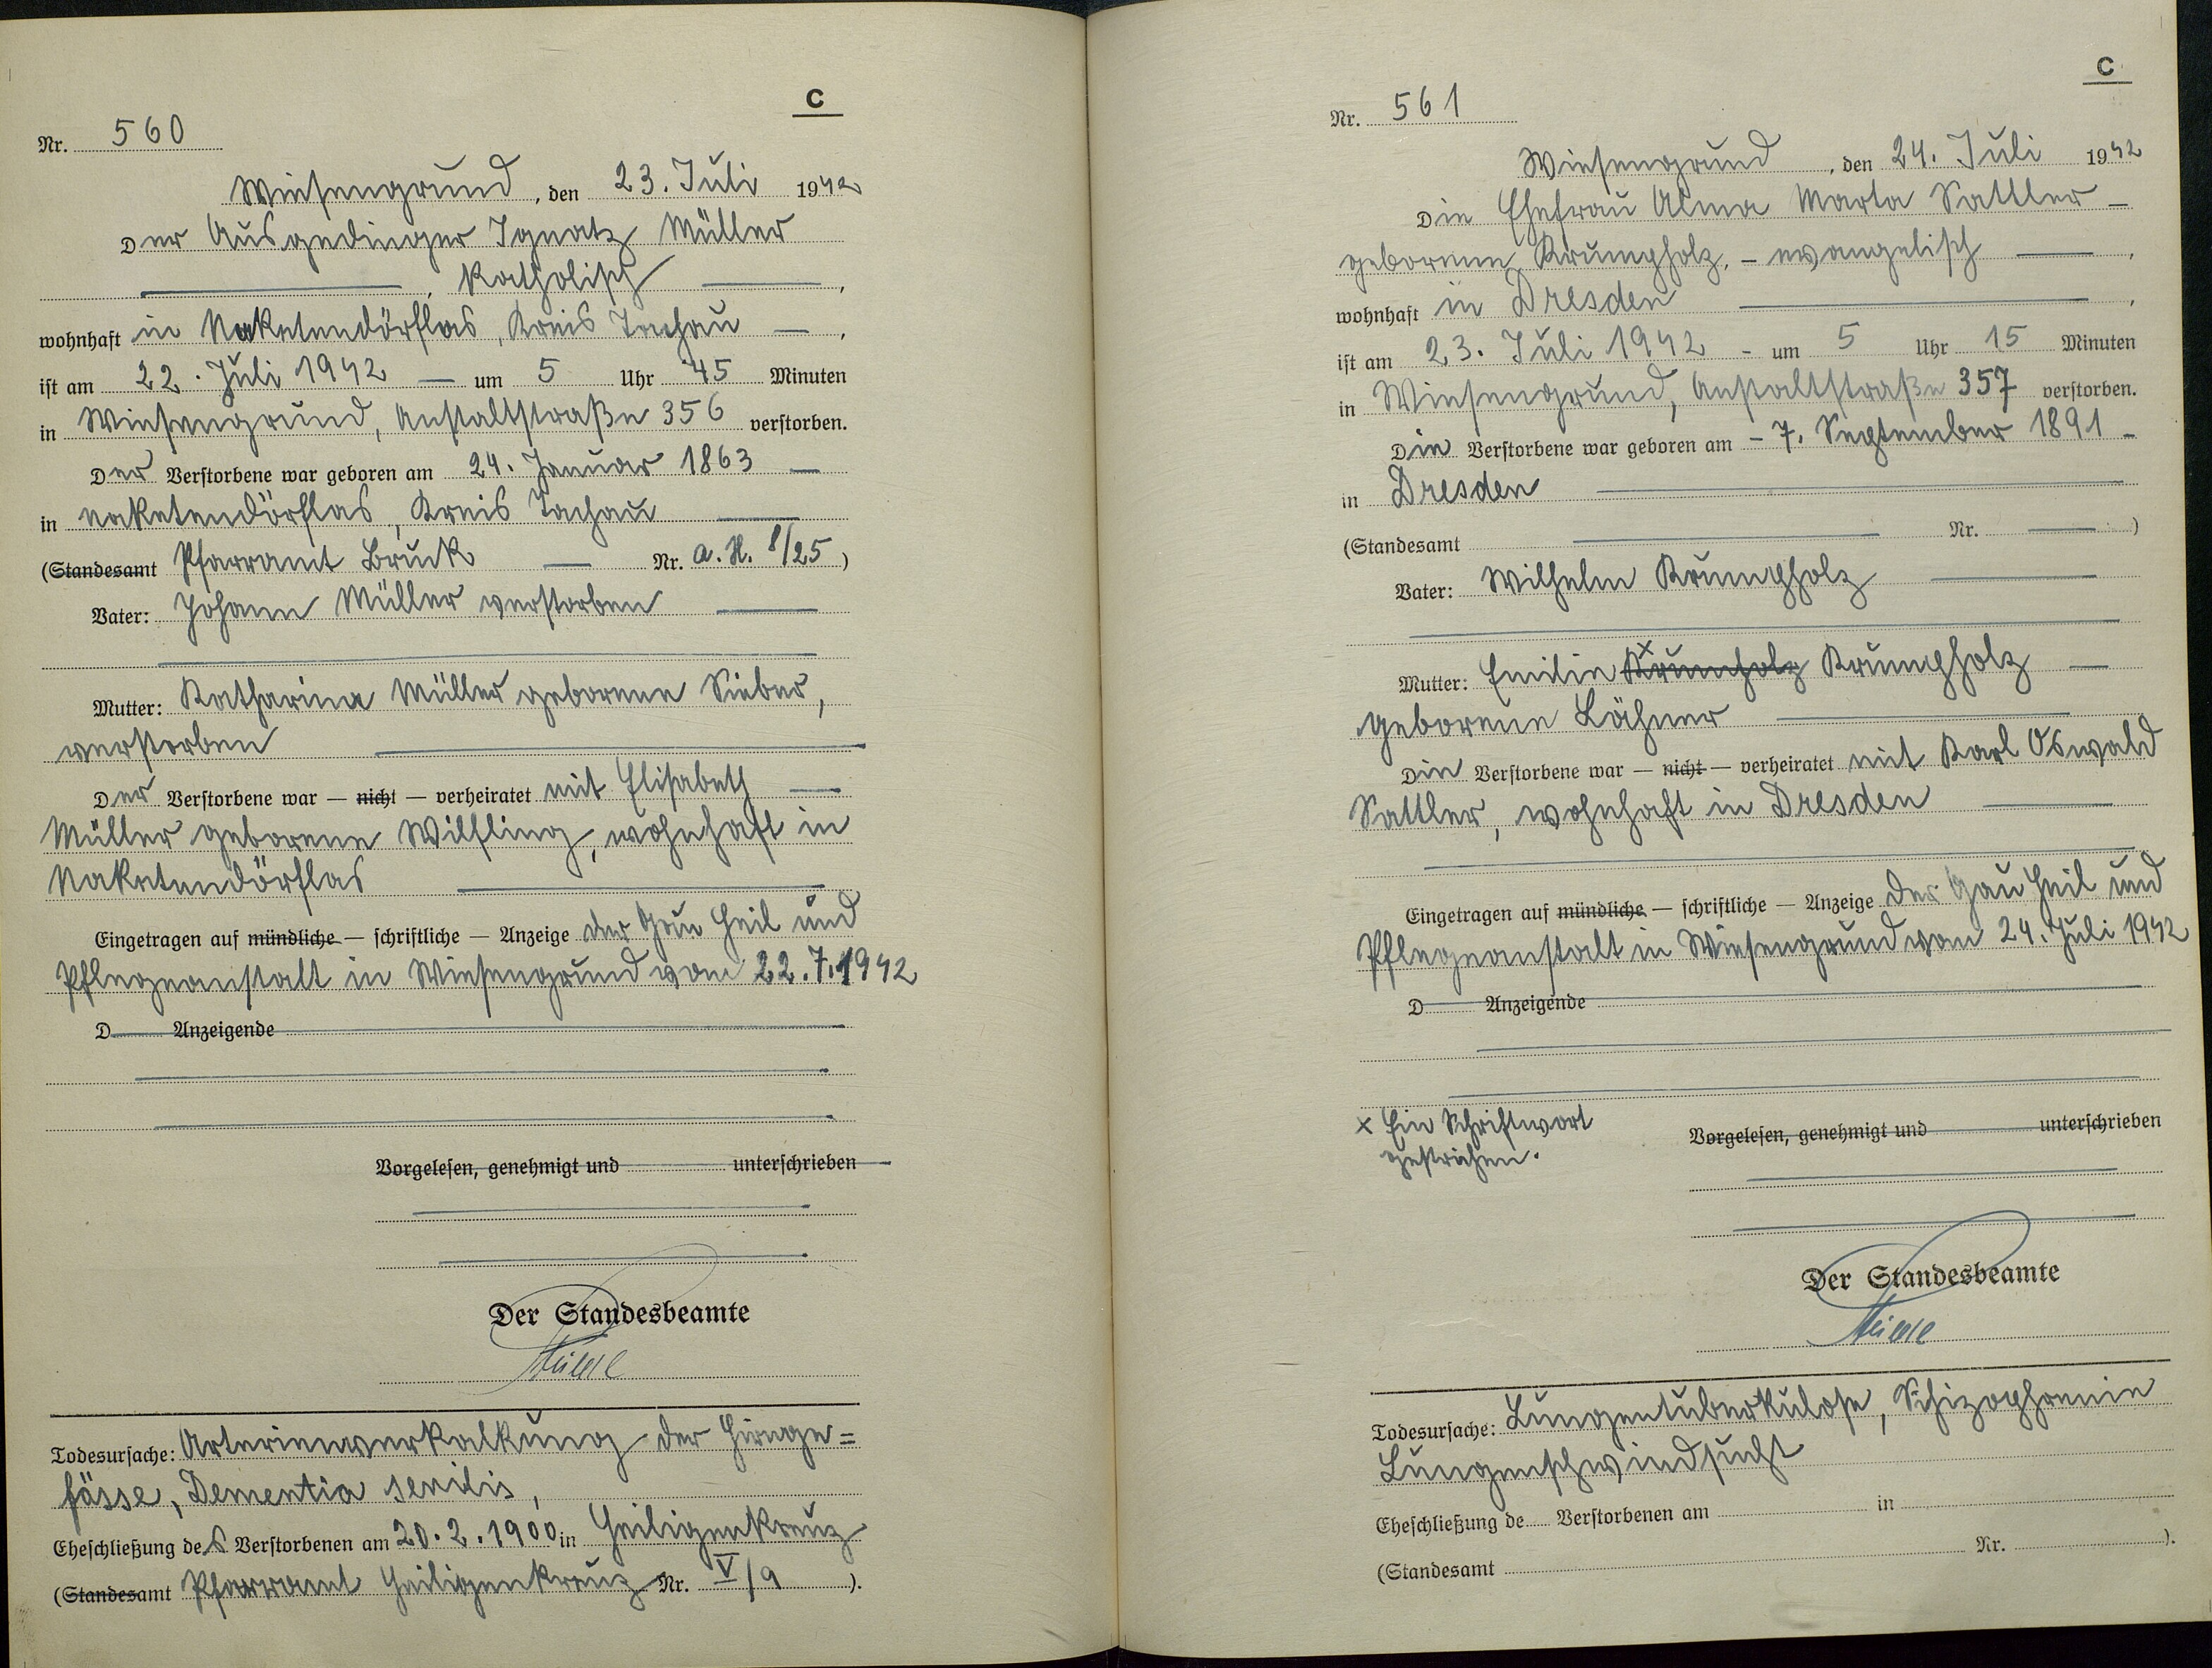 C
Nr. 560
Wiesengrund, den 23. Juli 1942
Der Ausgedinger Ignatz Müller
, katholisch ,
wohnhaft in Naketendörflas, Kreis Tachau ,
ist am 22. Juli 1942 um 5 Uhr 45 Minuten
in Wiesengrund, Anstaltstraße 356 verstorben.
Der Verstorbene war geboren am 24. Januar 1863
in Naketendörflas, Kreis Tachau
(Standesamt Pfarramt Bruck Nr. a. H. 8/25)
Vater: Johann Müller verstorben
Mutter: Katharina Müller geborene Sieber,
verstorben
Der Verstorbene war — nicht — verheiratet mit Elisabeth
Müller geborene Wilfling, wohnhaft in
Naketendörflas
Eingetragen auf mündliche — schriftliche — Anzeige der Gau Heil und
Pflegeanstalt in Wiesengrund vom 22.7.1942
D Anzeigende
Vorgelesen, genehmigt und unterschrieben
Der Standesbeamte
Todesursache: Arterienverkalkung der Hirnge=
fässe, Dementia senilis,
Eheschließung des Verstorbenen am 20.2.1900 in Heiligenkreuz
(Standesamt Pfarramt Heiligenkreuz Nr. V/9 ).
C
Nr. 561
Wiesengrund, den 24. Juli 1942
Die Ehefrau Alma Marta Sattler –
geborene Krumpholz, – evangelisch ,
wohnhaft in Dresden ,
ist am 23. Juli 1942 – um 5 Uhr 15 Minuten
in Wiesengrund, Anstaltstraße 357 verstorben.
Die Verstorbene war geboren am – 7. September 1891 –
in Dresden
(Standesamt Nr. )
Vater: Wilhelm Krumpholz
Mutter: Emilie x Krumholz Krumpholz
geborene Lähner
Die Verstorbene war — nicht — verheiratet mit Karl Oswald
Sattler, wohnhaft in Dresden
Eingetragen auf mündliche — schriftliche — Anzeige der Gau Heil und
Pflegeanstalt in Wiesengrund vom 24. Juli 1942
D Anzeigende
x Ein Schriftwort
gestrichen.
Vorgelesen, genehmigt und unterschrieben
Der Standesbeamte
Todesursache: Lungentuberkulose, Schizophrenie
Lungenschwindsucht
Eheschließung de Verstorbenen am in
(Standesamt Nr. ).